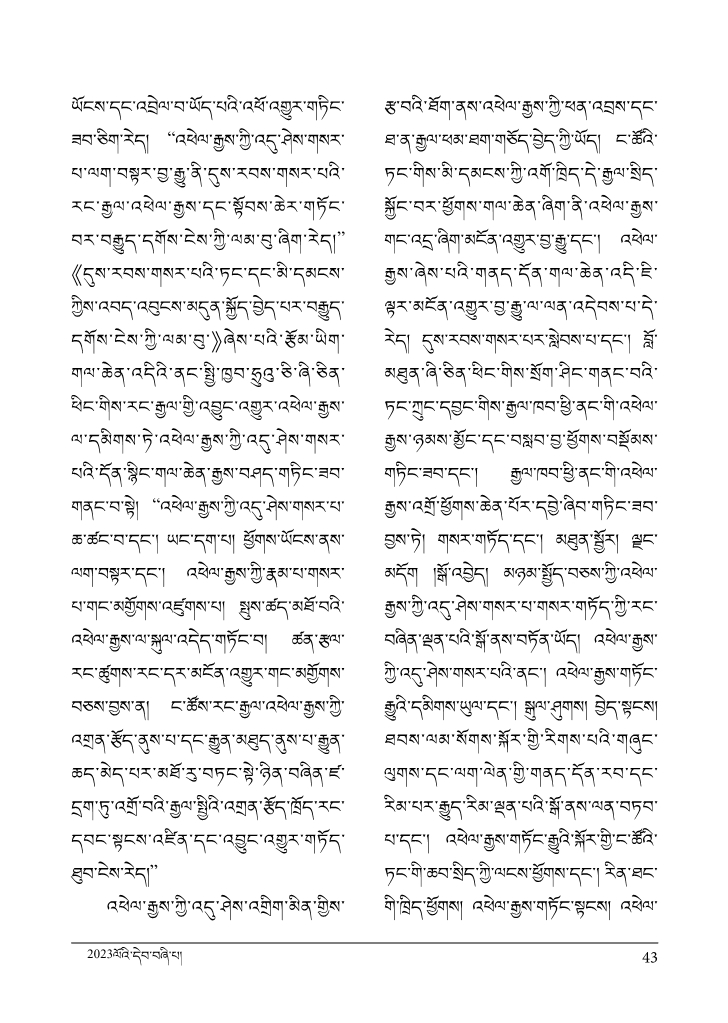 ཡོངས་དང་འབྲེལ་བ་ཡོད་པའི་འཕོ་འགྱུར་གཏིང་
ཟབ་ཅིག་རེད། “འཕེལ་རྒྱས་ཀྱི་འདུ་ཤེས་གསར་
པ་ལག་བསྟར་བྱ་རྒྱུ་ནི་དུས་རབས་གསར་པའི་
རང་རྒྱལ་འཕེལ་རྒྱས་དང་སྟོབས་ཆེར་གཏོང་
བར་བརྒྱུད་དགོས་ངེས་ཀྱི་ལམ་བུ་ཞིག་རེད།”
《དུས་རབས་གསར་པའི་ཏང་དང་མི་དམངས་
ཀྱིས་འབད་འབུངས་མདུན་སྐྱོད་བྱེད་པར་བརྒྱུད་
དགོས་ངེས་ཀྱི་ལམ་བུ་》ཞེས་པའི་རྩོམ་ཡིག་
གལ་ཆེན་འདིའི་ནང་སྤྱི་ཁྱབ་ཧྲུའུ་ཅི་ཞི་ཅིན་
ཕིང་གིས་རང་རྒྱལ་གྱི་འབྱུང་འགྱུར་འཕེལ་རྒྱས་
ལ་དམིགས་ཏེ་འཕེལ་རྒྱས་ཀྱི་འདུ་ཤེས་གསར་
པའི་དོན་སྙིང་གལ་ཆེན་རྒྱས་བཤད་གཏིང་ཟབ་
གནང་བ་སྟེ། “འཕེལ་རྒྱས་ཀྱི་འདུ་ཤེས་གསར་པ་
ཆ་ཚང་བ་དང་། ཡང་དག་པ། ཕྱོགས་ཡོངས་ནས་
ལག་བསྟར་དང་། འཕེལ་རྒྱས་ཀྱི་རྣམ་པ་གསར་
པ་གང་མགྱོགས་འཛུགས་པ། སྤུས་ཚད་མཐོ་བའི་
འཕེལ་རྒྱས་ལ་སྐུལ་འདེད་གཏོང་བ། ཚན་རྩལ་
རང་ཚུགས་རང་དར་མངོན་འགྱུར་གང་མགྱོགས་
བཅས་བྱས་ན། ང་ཚོས་རང་རྒྱལ་འཕེལ་རྒྱས་ཀྱི་
འགྲན་རྩོད་ནུས་པ་དང་རྒྱུན་མཐུད་ནུས་པ་རྒྱུན་
ཆད་མེད་པར་མཐོ་རུ་བཏང་སྟེ་ཉིན་བཞིན་ཛ་
དྲག་ཏུ་འགྲོ་བའི་རྒྱལ་སྤྱིའི་འགྲན་རྩོད་ཁྲོད་རང་
དབང་སྟངས་འཛིན་དང་འབྱུང་འགྱུར་གཏོད་
ཐུབ་ངེས་རེད།”
འཕེལ་རྒྱས་ཀྱི་འདུ་ཤེས་འགྲིག་མིན་གྱིས་
རྩ་བའི་ཐོག་ནས་འཕེལ་རྒྱས་ཀྱི་ཕན་འབྲས་དང་
ཐ་ན་རྒྱལ་ཕམ་ཐག་གཅོད་བྱེད་ཀྱི་ཡོད། ང་ཚོའི་
ཏང་གིས་མི་དམངས་ཀྱི་འགོ་ཁྲིད་དེ་རྒྱལ་སྲིད་
སྐྱོང་བར་ཕྱོགས་གལ་ཆེན་ཞིག་ནི་འཕེལ་རྒྱས་
གང་འདྲ་ཞིག་མངོན་འགྱུར་བྱ་རྒྱུ་དང་། འཕེལ་
རྒྱས་ཞེས་པའི་གནད་དོན་གལ་ཆེན་འདི་ཇི་
ལྟར་མངོན་འགྱུར་བྱ་རྒྱུ་ལ་ལན་འདེབས་པ་དེ་
རེད། དུས་རབས་གསར་པར་སླེབས་པ་དང་། བློ་
མཐུན་ཞི་ཅིན་ཕིང་གིས་སྲོག་ཤིང་གནང་བའི་
ཏང་ཀྲུང་དབྱང་གིས་རྒྱལ་ཁབ་ཕྱི་ནང་གི་འཕེལ་
རྒྱས་ཉམས་མྱོང་དང་བསླབ་བྱ་ཕྱོགས་བསྡོམས་
གཏིང་ཟབ་དང་། རྒྱལ་ཁབ་ཕྱི་ནང་གི་འཕེལ་
རྒྱས་འགྲོ་ཕྱོགས་ཆེན་པོར་དབྱེ་ཞིབ་གཏིང་ཟབ་
བྱས་ཏེ། གསར་གཏོད་དང་། མཐུན་སྦྱོར། ལྗང་
མདོག །སྒོ་འབྱེད། མཉམ་སྤྱོད་བཅས་ཀྱི་འཕེལ་
རྒྱས་ཀྱི་འདུ་ཤེས་གསར་པ་གསར་གཏོད་ཀྱི་རང་
བཞིན་ལྡན་པའི་སྒོ་ནས་བཏོན་ཡོད། འཕེལ་རྒྱས་
ཀྱི་འདུ་ཤེས་གསར་པའི་ནང་། འཕེལ་རྒྱས་གཏོང་
རྒྱུའི་དམིགས་ཡུལ་དང་། སྐུལ་ཤུགས། བྱེད་སྟངས།
ཐབས་ལམ་སོགས་སྐོར་གྱི་རིགས་པའི་གཞུང་
ལུགས་དང་ལག་ལེན་གྱི་གནད་དོན་རབ་དང་
རིམ་པར་རྒྱུད་རིམ་ལྡན་པའི་སྒོ་ནས་ལན་བཏབ་
པ་དང་། འཕེལ་རྒྱས་གཏོང་རྒྱུའི་སྐོར་གྱི་ང་ཚོའི་
ཏང་གི་ཆབ་སྲིད་ཀྱི་ལངས་ཕྱོགས་དང་། རིན་ཐང་
གི་ཁྲིད་ཕྱོགས། འཕེལ་རྒྱས་གཏོང་སྟངས། འཕེལ་
2023ལོའི་དེབ་བཞི་པ། 43